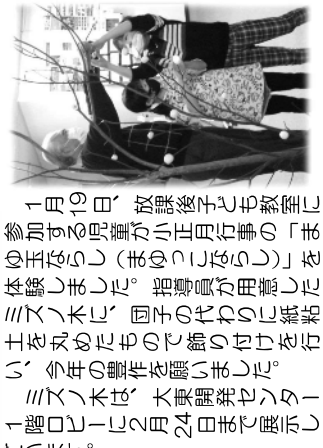 １月19日、放課後子ども教室に
参加する児童が小正月行事の「ま
ゆ玉ならし（まゆっこならし）」を
体験しました。指導員が用意した
ミズノ木に、団子の代わりに紙粘
土を丸めたもので飾り付けを行
い、今年の豊作を願いました。
ミズノ木は、大東開発センター
１階ロビーに２月24日まで展示し
ています。